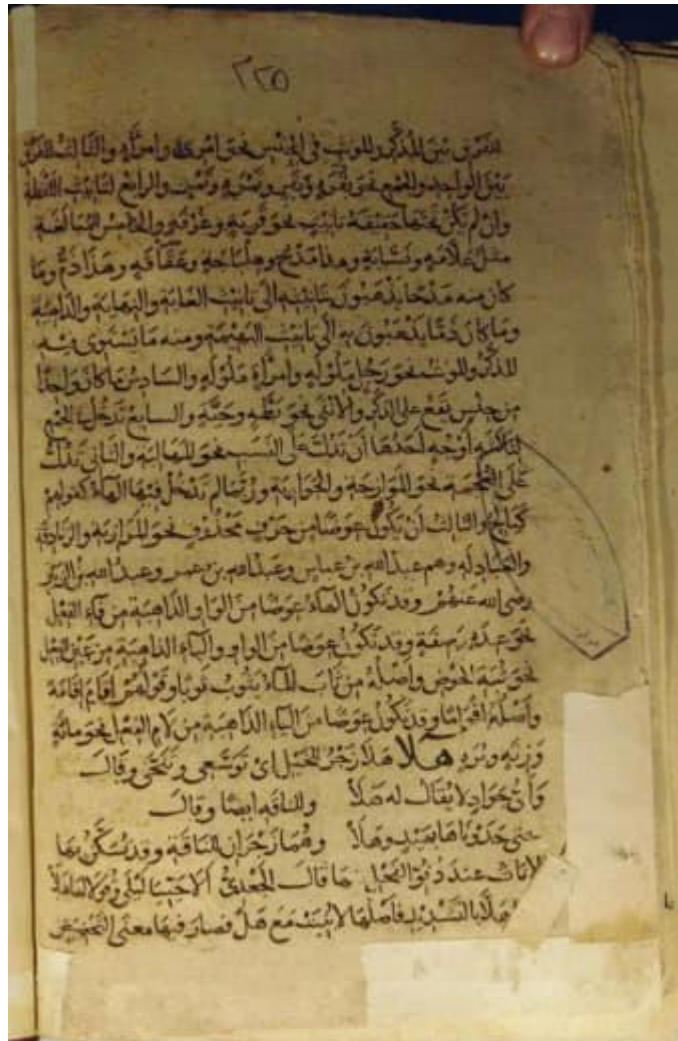 ٢٢٥
للفرق بين المذكر والمونث في الجنس نحو امرئ وامراة والثالث للفرق
بين الواحد والجمع نحو بقرة وبقر وتمرة وتمر والرابع لتانيث اللفظة
وان لم تكن تحتها حقيقة تانيث نحو قربة وغرفة والخامس للمبالغة
مثل علامة ونسابة وهذا مدح وهلباجة وعقاقة وهذا ذم وما
كان منه مدحا يذهبون بتانيثه الى تانيث الغاية والنهاية والداهية
وما كان ذما يذهبون به الى تانيث البهيمة ومنه ما يستوى فيه
المذكر والمونث نحو رجل ملولة وامراة ملولة والسادس ما كان واحدا
من جنس يقع على الذكر والانثى نحو بطة وحية والسابع تدخل في الجمع
لثلاثة اوجه احدها ان تدل على النسب نحو المهالبة والثانى تدل
على العجمة نحو الموازجة والجواربة وربما لم تدخل فيها الهاء كقولهم
كيالج والثالث ان تكون عوضا من حرف محذوف نحو المرازبة والزنادقة
والعبادلة وهم عبد الله بن عباس وعبد الله بن عمر وعبد الله بن الزبير
رضى الله عنهم وقد تكون الهاء عوضا من الواو الذاهبة من فاء الفعل
نحو عدة وصفة وقد تكون عوضا من الواو والياء الذاهبة من عين الفعل
نحو ثبة الحوض واصله من ثاب الماء يثوب ثوبا وقولهم اقام اقامة
واصله اقواما وقد تكون عوضا من الياء الذاهبة من لام الفعل نحو مائة
ورئة وبرة هلا هلا زجر للخيل اى توسعى وتنحى وقال
واى جواد لا يقال له هلا وللناقة ايضا وقال
حتى حدوناها بهيد وهلا وهما زجران للناقة وقد يسكن بها
الاناث عند دنو الفحل قال الجعدى الا حييا ليلى وقولا لها هلا
هلا بالتشديد فاصلها لا بنيت مع هل فصار فيها معنى التحضيض